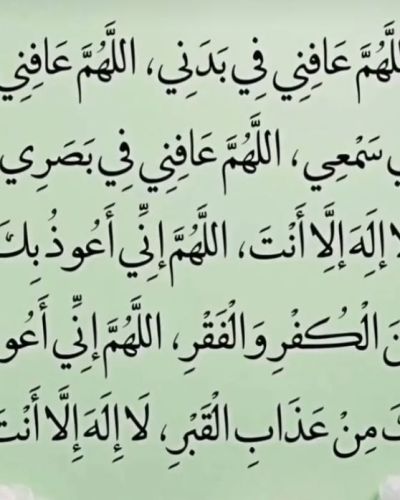 للَّهُمَّ عَافِنِي فِي بَدَنِي، اللَّهُمَّ عَافِنِي
ي سَمْعِي، اللَّهُمَّ عَافِنِي فِي بَصَرِي
لَا إِلَهَ إِلَّا أَنْتَ، اللَّهُمَّ إِنِّي أَعُوذُ بِكَ
نَ الْكُفْرِ وَالْفَقْرِ، اللَّهُمَّ إِنِّي أَعُو
كَ مِنْ عَذَابِ الْقَبْرِ، لَا إِلَهَ إِلَّا أَنْتَ